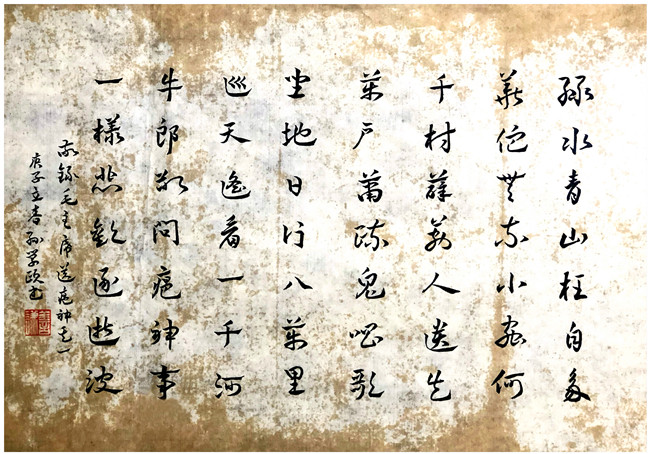 綠水青山枉自多
華佗無奈小蟲何
千村薜荔人遺失
萬戶蕭疏鬼唱歌
坐地日行八萬里
巡天遙看一千河
牛郎欲問瘟神事
一樣悲歡逐逝波
錄毛主席送瘟神其一
庚子立春孙書